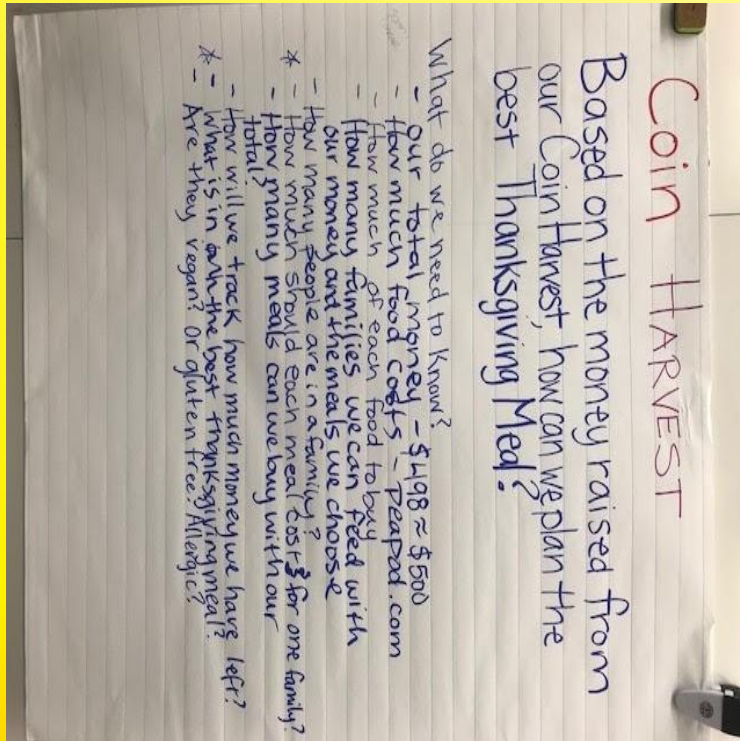 Coin HARVEST
Based on the money raised from
our Coin Harvest, how can we plan the
best Thanksgiving Meal?
What do we need to know?
- our total money - $498 ≈ $500
- How much food costs - peapod.com
- How much of each food to buy
- How many families we can feed with
our money and the meals we choose
- How many people are in a family?
* - How much should each meal cost? for one family?
- How many meals can we buy with our
total?
- How will we track how much money we have left?
* - What is in the best thanksgiving meal?
- Are they vegan? Or gluten free? Allergic?